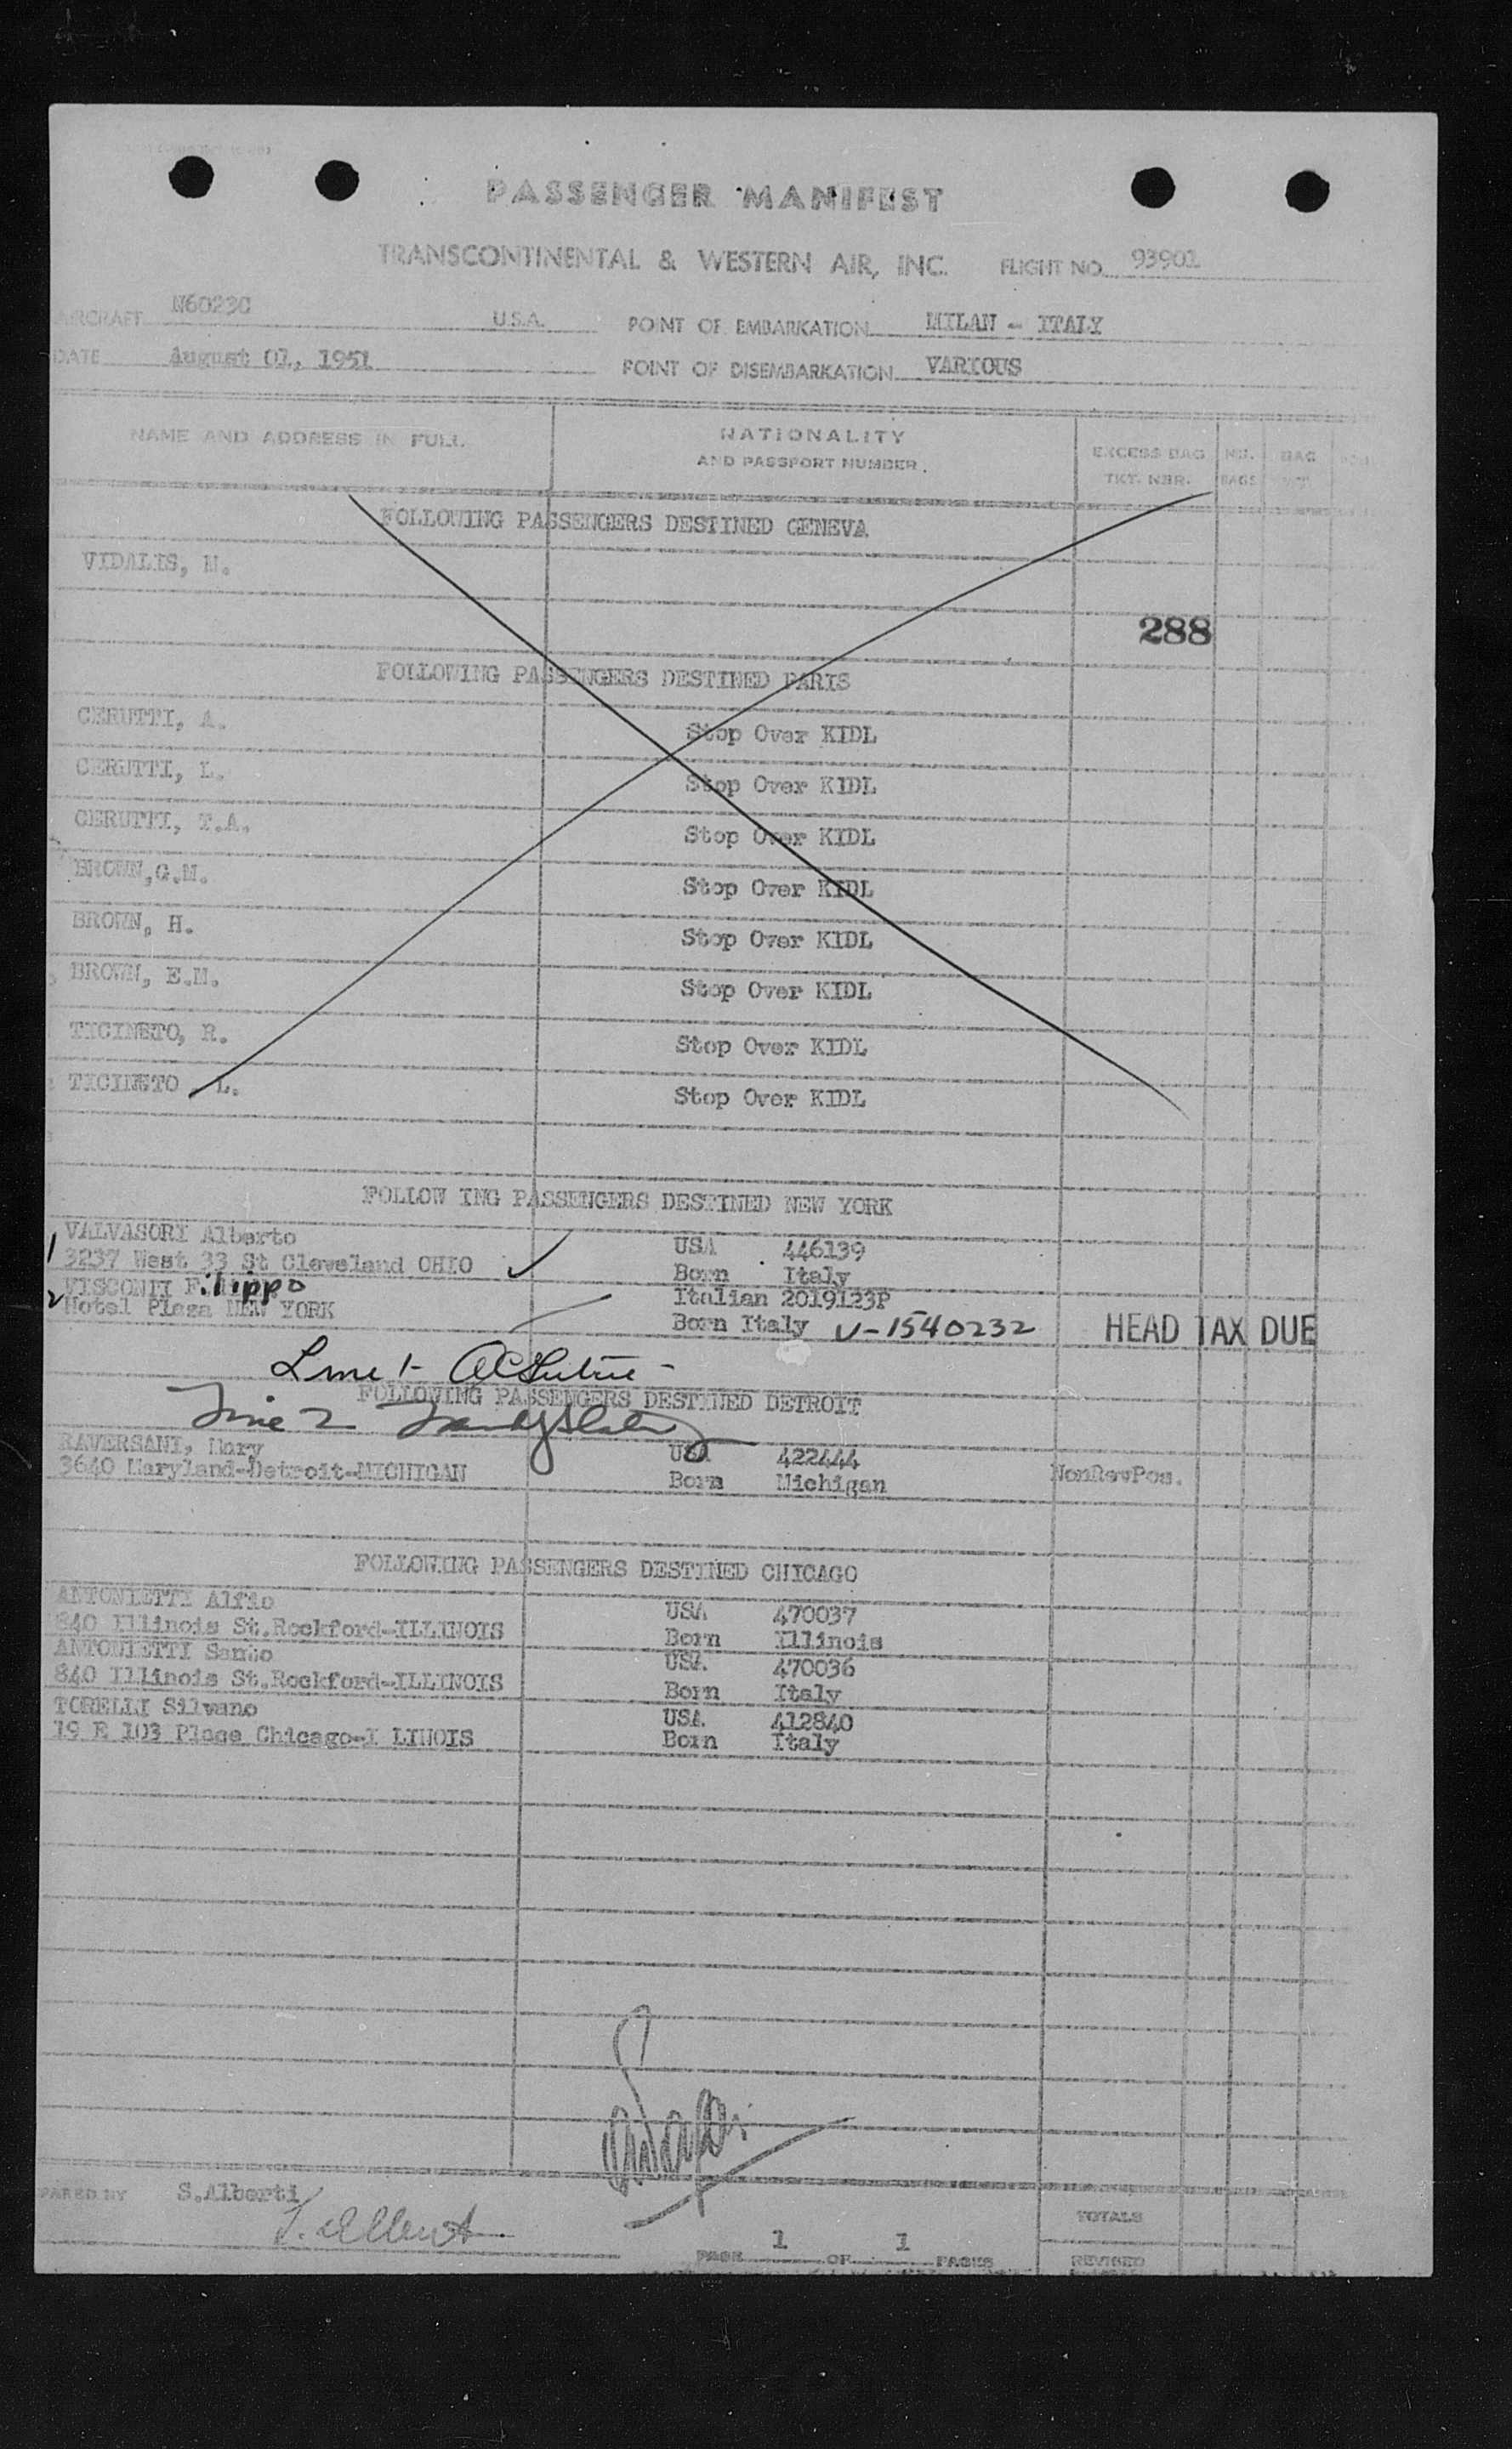 PASSENGER MANIFEST
TRANSCONTINENTAL & WESTERN AIR, INC. FLIGHT NO. 93901
AIRCRAFT N6023C U.S.A. POINT OF EMBARKATION MILAN - ITALY
DATE August 01, 1951 POINT OF DISEMBARKATION VARIOUS
NAME AND ADDRESS IN FULL NATIONALITY AND PASSPORT NUMBER. EXCESS BAG TKT. NBR. NO. BAGS BAG WT.
FOLLOWING PASSENGERS DESTINED GENEVA
VIDALIS, N.
288
FOLLOWING PASSENGERS DESTINED PARIS
CERUTTI, A. Stop Over KIDL
CERUTTI, L. Stop Over KIDL
CERUTTI, T.A. Stop Over KIDL
BROWN,G.M. Stop Over KIDL
BROWN, H. Stop Over KIDL
BROWN, E.M. Stop Over KIDL
TICINETO, R. Stop Over KIDL
TICINETO L. Stop Over KIDL
FOLLOW ING PASSENGERS DESTINED NEW YORK
1 VALVASORI Alberto USA 446139
3237 West 33 St Cleveland OHIO Born Italy
2 VISCONTI Filippo Italian 2019123P
Hotel Plaza NEW YORK Born Italy V-1540232 HEAD TAX DUE
Line 1-
FOLLOWING PASSENGERS DESTINED DETROIT
Line 2
RAVERSANI, Mary USA 422444
3640 Maryland-Detroit-MICHIGAN Born Michigan NonRevPos.
FOLLOWING PASSENGERS DESTINED CHICAGO
ANTONIETTI Alfio USA 470037
840 Illinois St.Rockford-ILLINOIS Born Illinois
ANTONIETTI Santo USA 470036
840 Illinois St.Rockford-ILLINOIS Born Italy
TORELLI Silvano USA 412840
19 E 103 Place Chicago-I LINOIS Born Italy
PARED BY S.Alberti
S. Alberti
TOTALS
PAGE 1 OF 1 PAGES REVISED